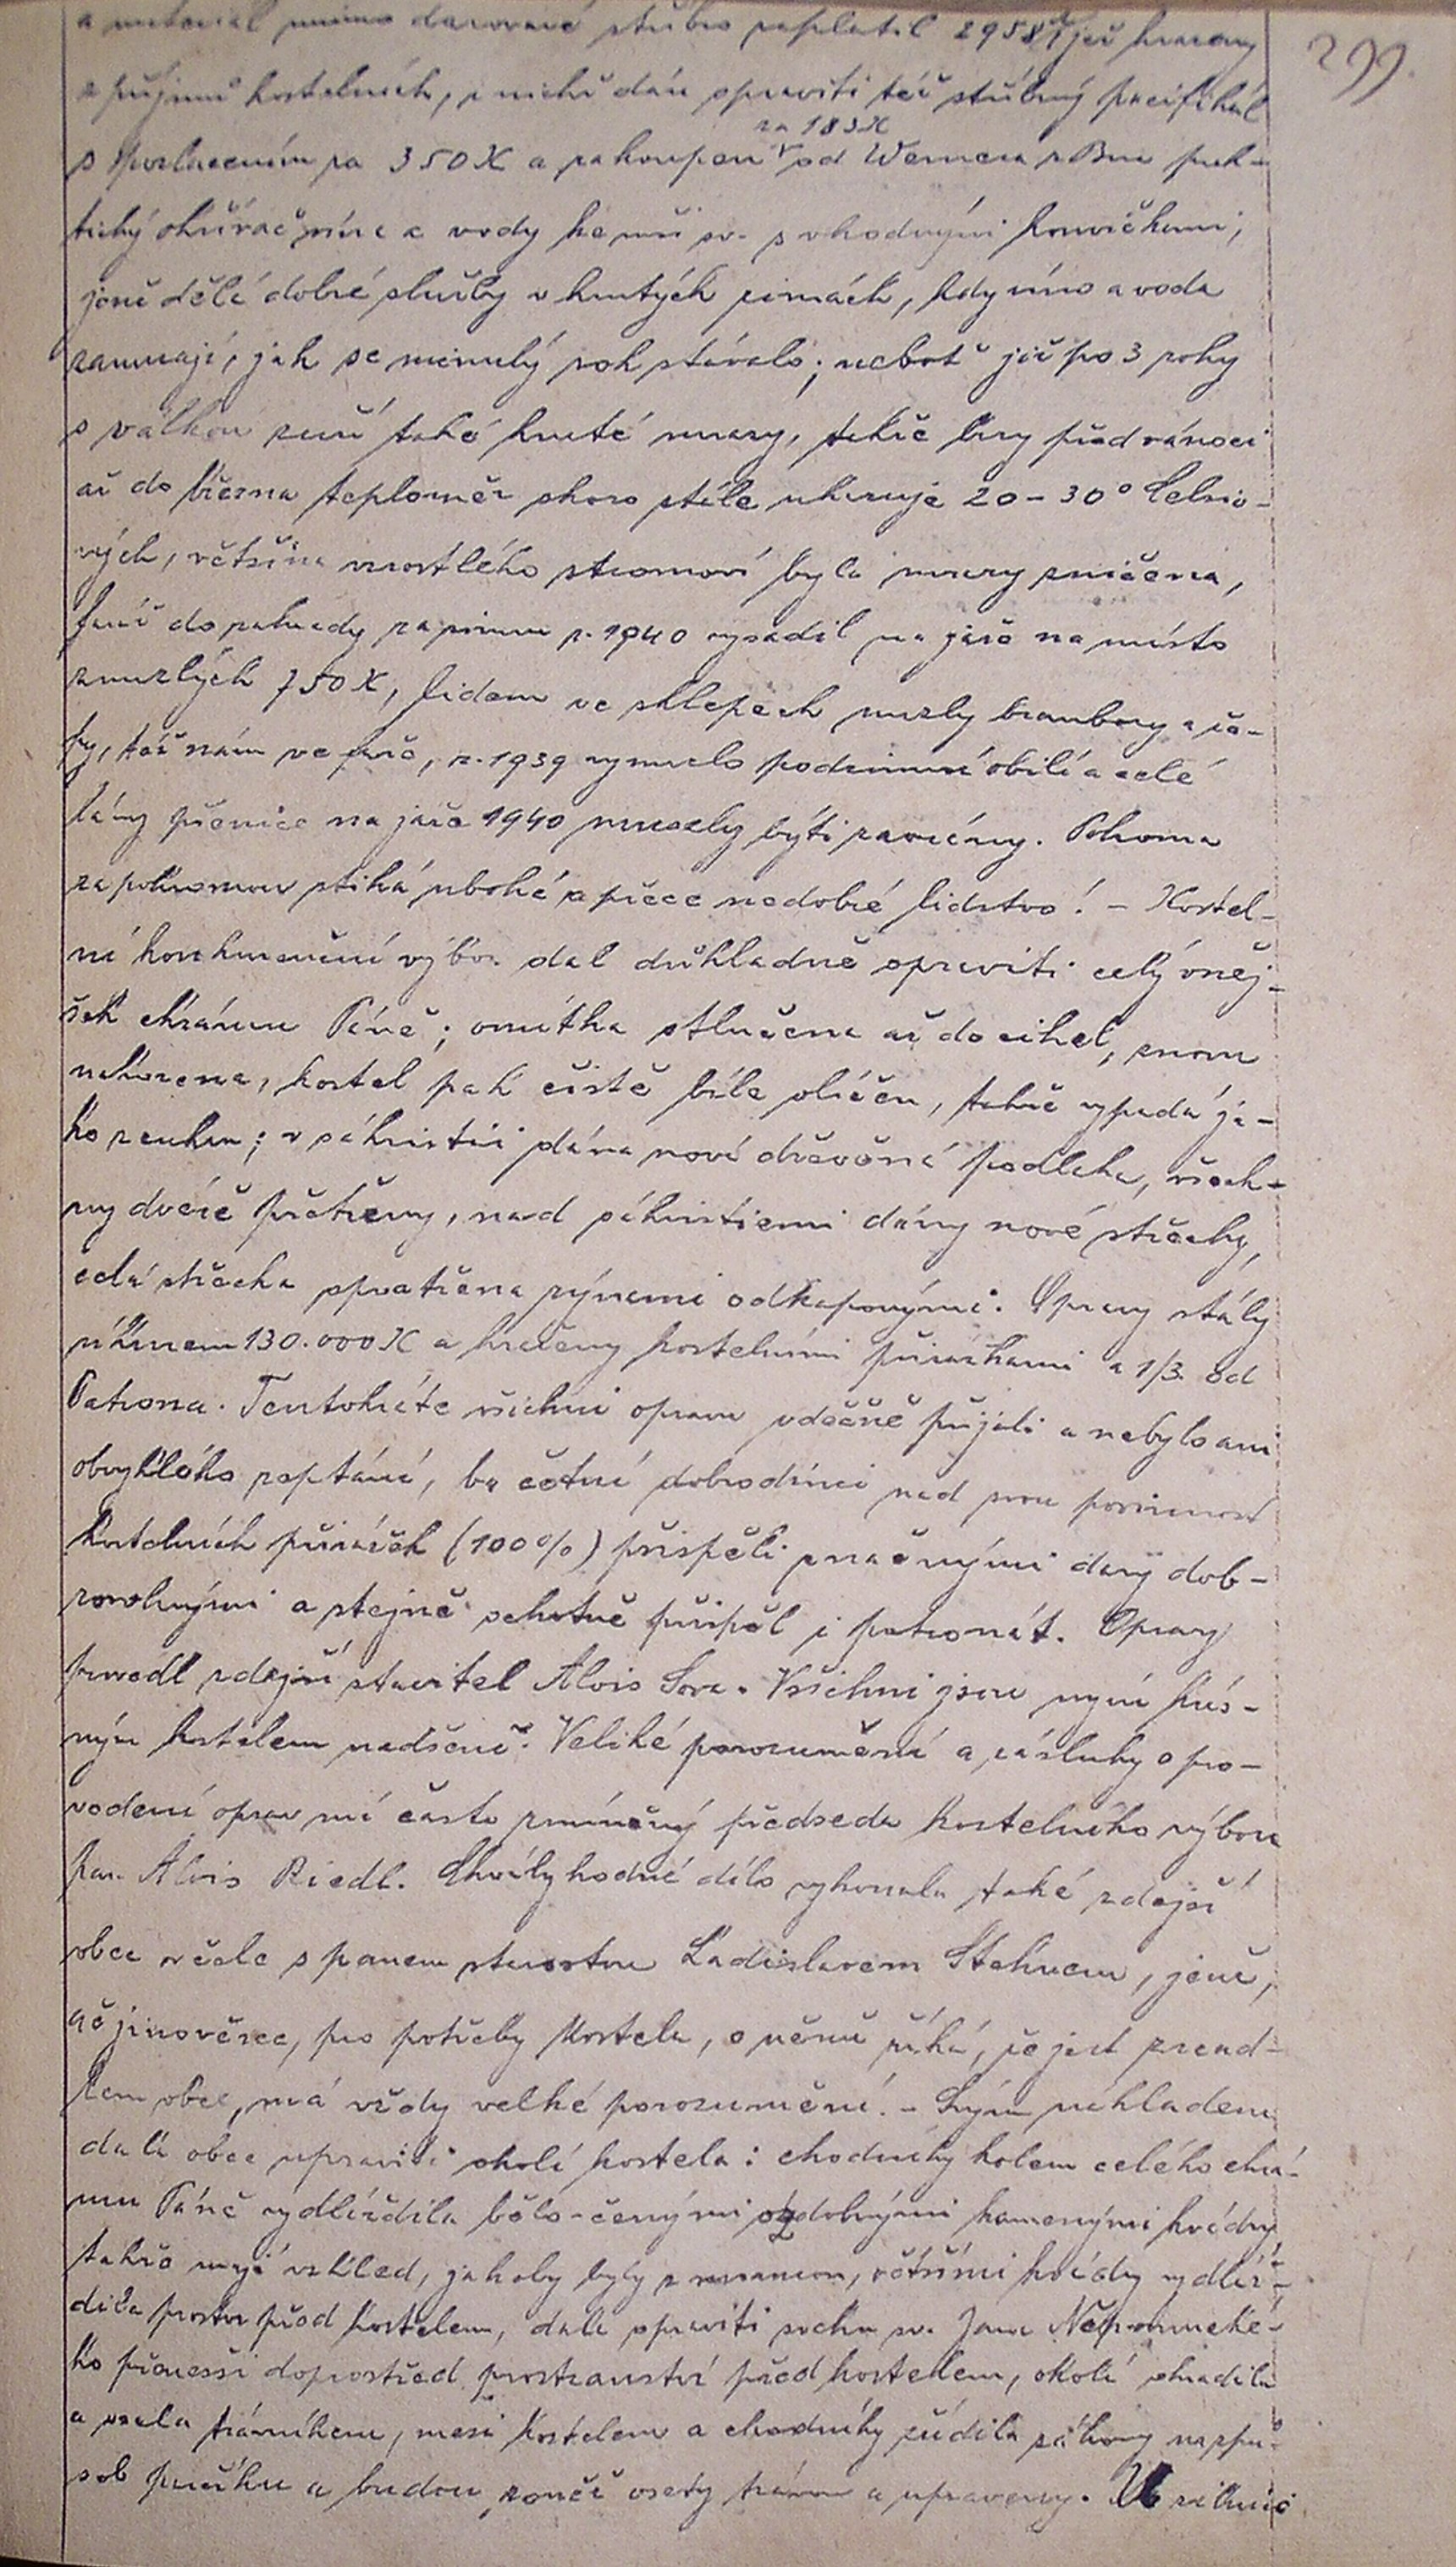 299.
a material mimo darované stříbro zaplatil 2958 K jež hrazeny
z příjmů kostelních, z nichž dán opraviti též stříbrný pacifikál
za 183 K
s pozlacením za 350 K a zakoupen od Wernera z Brna prak-
tický ohřívač vína a vody ke mši sv. s vhodnými konvičkami,
jenž dělá dobré služby v krutých zimách, kdy víno a voda
zamrzají, jak se minulý rok stávalo; neboť již po 3 roky
s válkou zuří také kruté mrazy, takže brzy před vánoci
až do března teploměr skoro stále ukazuje 20 – 30° Celsio-
vých, většina vzrostlého stromoví byla mrazy zničena,
farář do zahrady za zimu r. 1940 vysadil na jaře na místo
zmrzlých 750 K, lidem ve sklepech mrzly brambory a ře-
py, též nám ve faře, r. 1939 vymrzlo podzimní obilí a celé
lány pšenice na jaře 1940 musely býti zaorány. Pohroma
za pohromou stíhá ubohé a přece nedobré lidstvo! – Kostel-
ní konkurenční výbor dal důkladně opraviti celý vněj-
šek chrámu Páně; omítka otlučena až do cihel, znovu
nahozena, kostel pak čistě bíle olíčen, takže vypadá ja-
ko z cukru; v sákristii dána nová dřevěná podlaha, všech-
ny dvéře přetřeny, nad sákristiemi dány nové střechy,
celá střecha opatřena rýnami odkapovými. Opravy stály
úhrnem 130.000 K a hrazeny kostelními přirážkami a 1/3 od
Patrona. Tentokráte všichni opravu vděčně přijali a nebylo ani
obvyklého reptání, ba četní dobrodinci nad svou povinnost
kostelních přirážek (100 %) přispěli značnými dary dob-
rovolnými a stejně ochotně přispěl i patronát. Opravy
provedl zdejší stavitel Alois Sova. Všichni jsou nyní krás-
ným kostelem nadšeni. Veliké porozumění a zásluhy o pro-
vedení oprav má často zmíněný předseda kostelního výboru
pan Alois Riedl. Chvályhodné dílo vykonala také zdejší
obec v čele s panem starostou Ladislavem Stehnem, jenž,
ač jinověrec, pro potřeby kostela, o němž říká, že jest zrcad-
lem obce, má vždy velké porozumění. – Svým nákladem
dala obec upraviti okolí kostela: chodníky kolem celého chrá-
mu Páně vydláždila bělo-černými ozdobnými kamennými kvádry,
takže mají vzhled, jakoby byly z mramoru, většími kvádry vydláž-
dila prostor před kostelem, dala opraviti sochu sv. Jana Nepomucké-
ho přenesši doprostřed prostranství před kostelem, okolí ohradila
a osela trávníkem, mezi kostelem a chodníky zřídila záhony na způ-
sob parčíku a budou rovněž osety trávou a upraveny. U silnice